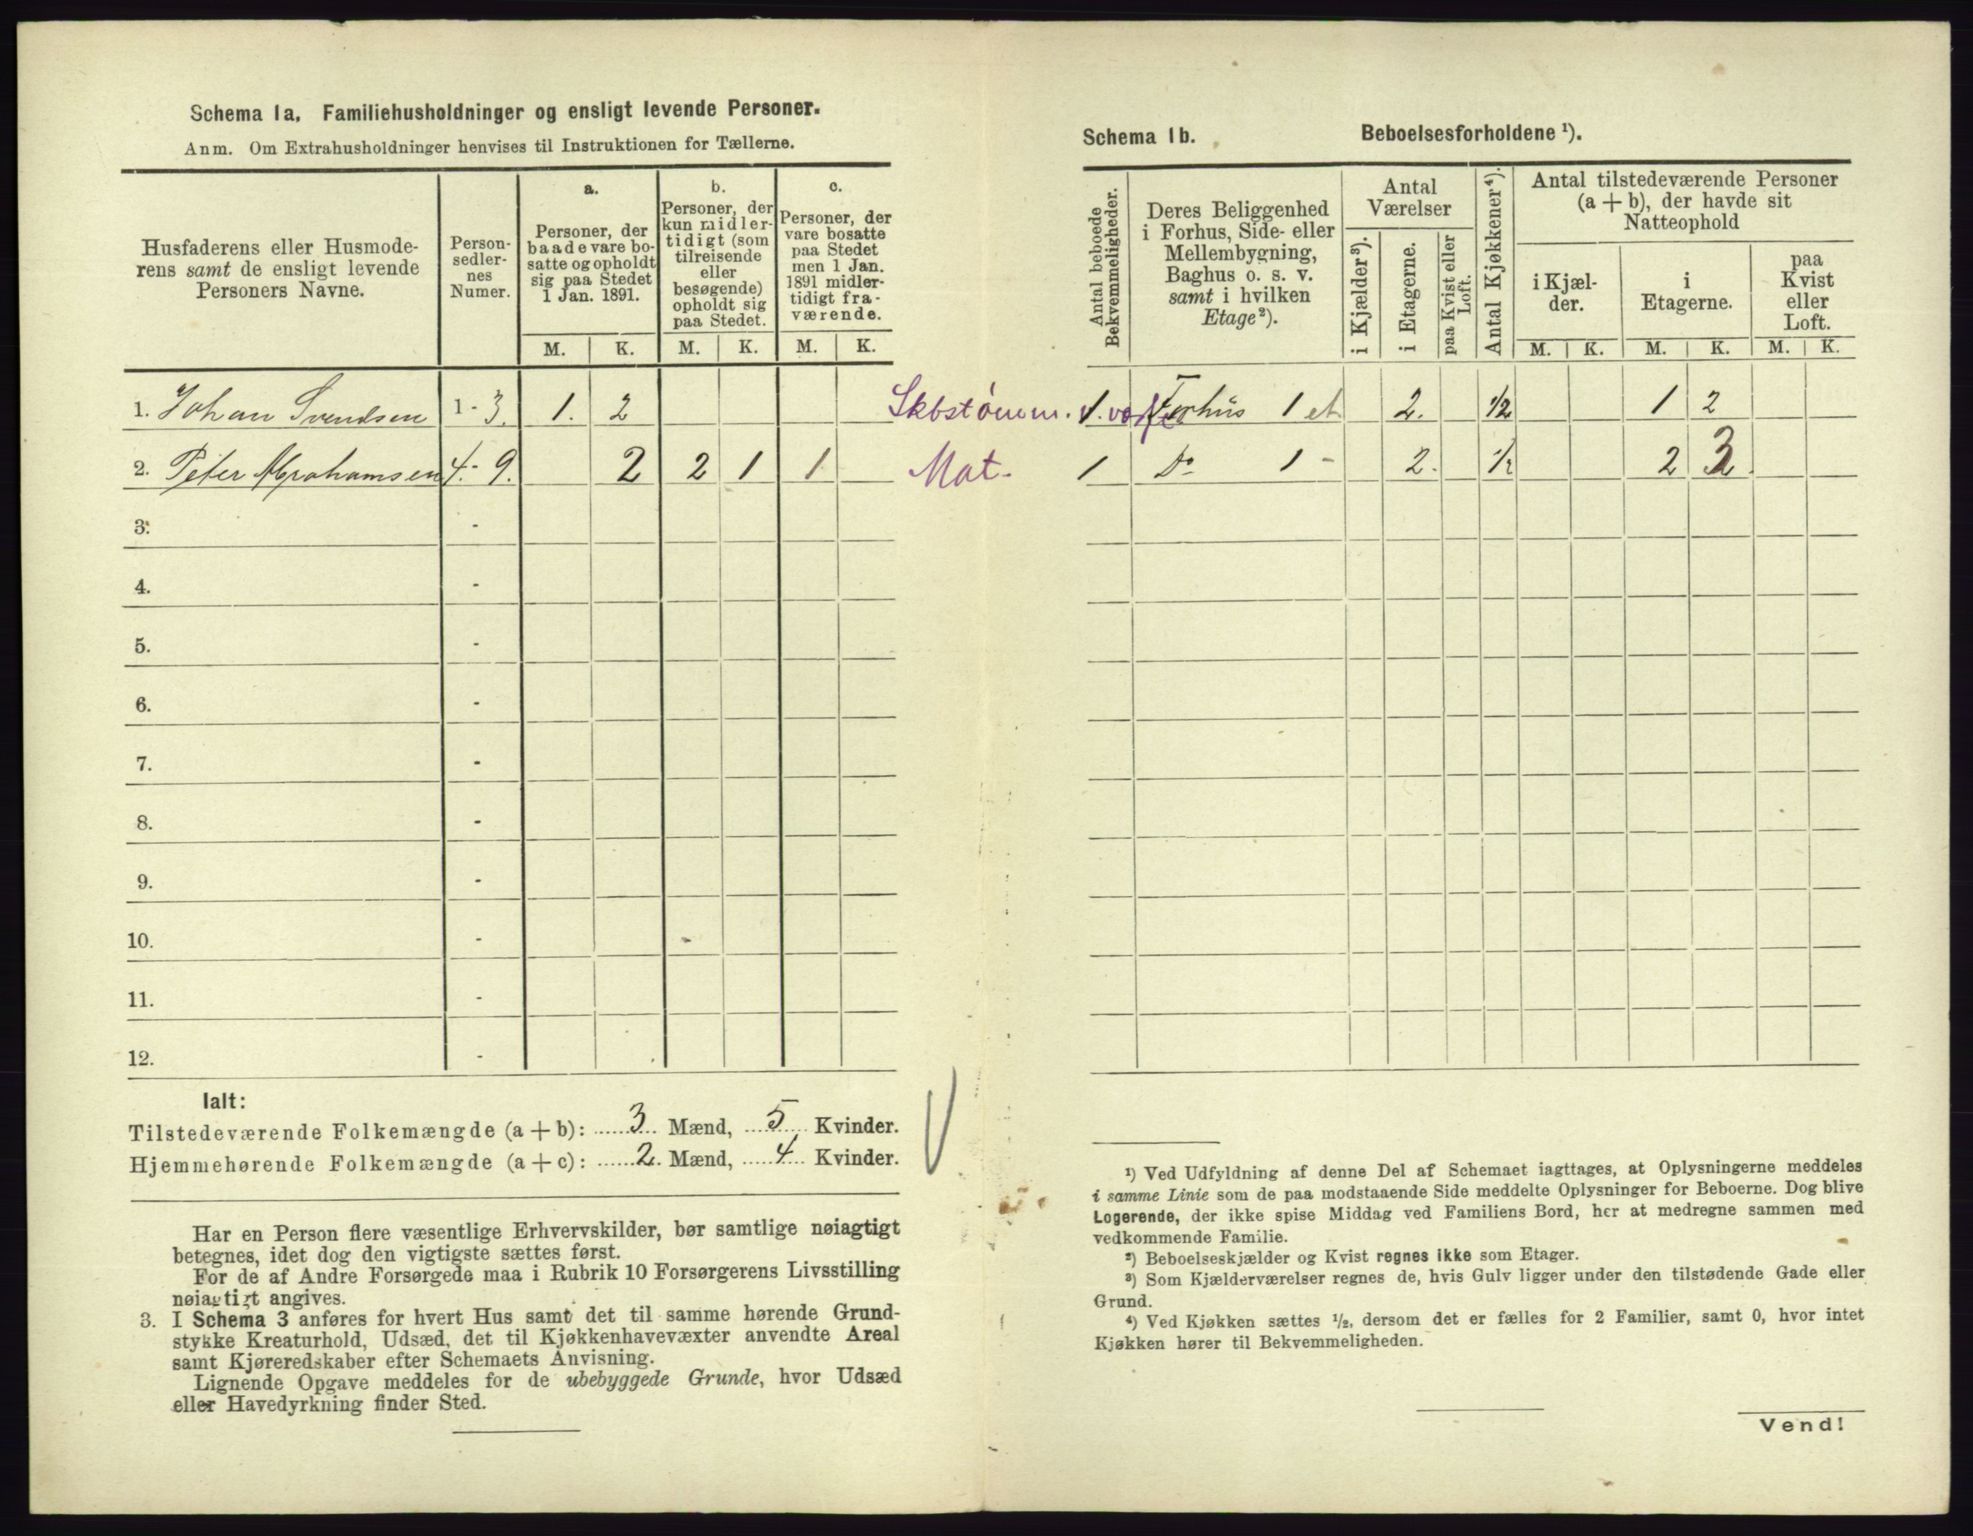 Schema 1a. Familiehusholdninger og ensligt levende Personer.
Anm. Om Extrahusholdninger henvises til Instruktionen for Tællerne.
Husfaderens eller Husmode-
rens samt de ensligt levende
Personers Navne.
Person-
sedler-
nes
Numer.
a.
Personer, der
baade vare bo-
satte og opholdt
sig paa Stedet
1 Jan. 1891.
b.
Personer, der
kun midler-
tidigt (som
tilreisende
eller
besøgende)
opholdt sig
paa Stedet.
c.
Personer, der
vare bosatte
paa Stedet
men 1 Jan.
1891 midler-
tidigt fra-
værende.
M. K. M. K. M. K.
1. Johan Svendsen 1 - 3. 1. 2
2. Peter Abrahamsen 4 - 9. 2 2 1 1
3. -
4. -
5. -
6. -
7. -
8. -
9. -
10. -
11. -
12. -
Ialt:
Tilstedeværende Folkemængde (a + b): 3 Mænd, 5 Kvinder.
Hjemmehørende Folkemængde (a + c): 2 Mænd, 4 Kvinder.
Har en Person flere væsentlige Erhvervskilder, bør samtlige nøiagtigt
betegnes, idet dog den vigtigste sættes først.
For de af Andre Forsørgede maa i Rubrik 10 Forsørgerens Livsstilling
nøiagtigt angives.
3. I Schema 3 anføres for hvert Hus samt det til samme hørende Grund-
stykke Kreaturhold, Udsæd, det til Kjøkkenhavevæxter anvendte Areal
samt Kjøreredskaber efter Schemaets Anvisning.
Lignende Opgave meddeles for de ubebyggede Grunde, hvor Udsæd
eller Havedyrkning finder Sted.
Schema 1b. Beboelsesforholdene ¹).
Antal beboede
Bekvemmeligheder.
Deres Beliggenhed
i Forhus, Side- eller
Mellembygning,
Baghus o. s. v.
samt i hvilken
Etage²).
Antal
Værelser
i Kjælder³).
i Etagerne.
paa Kvist eller
Loft.
Antal Kjøkkener⁴).
Antal tilstedeværende Personer
(a + b), der havde sit
Natteophold
i Kjæl-
der.
i
Etagerne.
paa
Kvist
eller
Loft.
M. K. M. K. M. K.
Skbstømm. 1 Forhus 1 et. 2. 1/2 1 2
Mat. 1 Do 1 - 2. 1/2 2 3
¹) Ved Udfyldning af denne Del af Schemaet iagttages, at Oplysningerne meddeles
i samme Linie som de paa modstaaende Side meddelte Oplysninger for Beboerne. Dog blive
Logerende, der ikke spise Middag ved Familiens Bord, her at medregne sammen med
vedkommende Familie.
²) Beboelseskjælder og Kvist regnes ikke som Etager.
³) Som Kjælderværelser regnes de, hvis Gulv ligger under den tilstødende Gade eller
Grund.
⁴) Ved Kjøkken sættes ¹/₂, dersom det er fælles for 2 Familier, samt 0, hvor intet
Kjøkken hører til Bekvemmeligheden.
Vend!